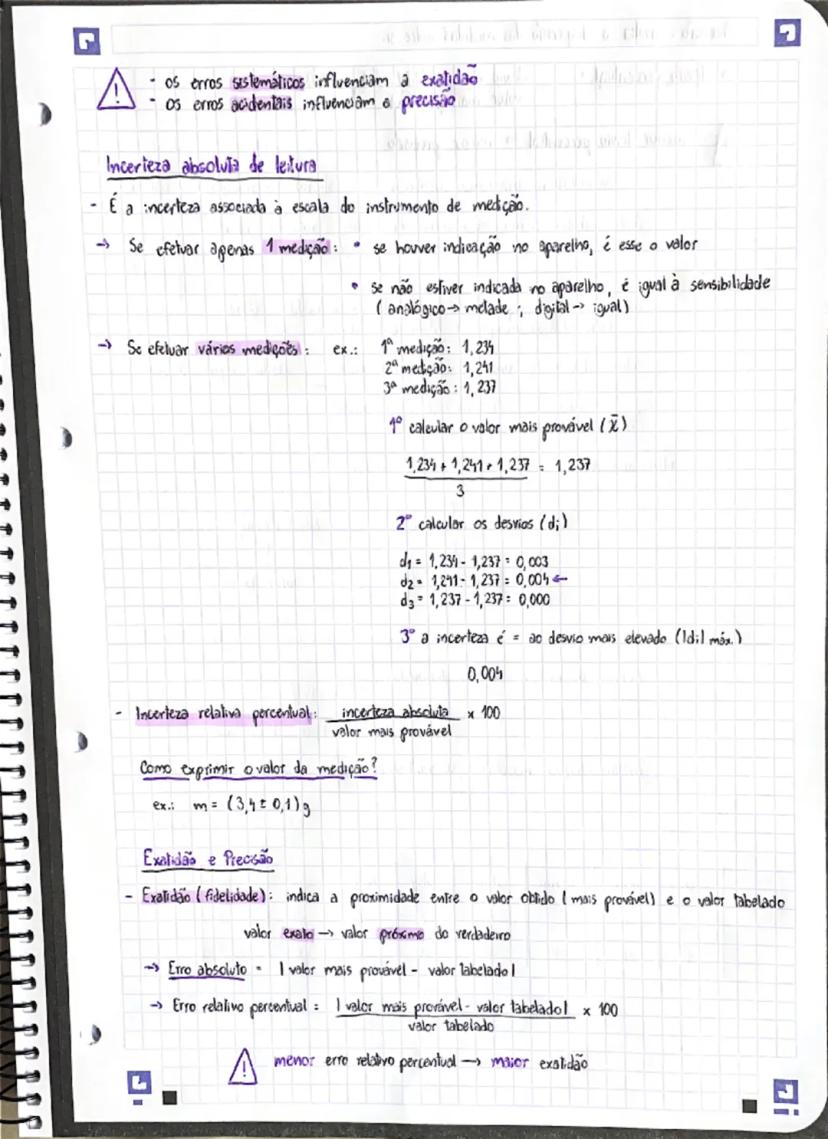 - os erros sistemáticos influenciam a exatidão
- os erros acidentais influenciam a precisão
Incerteza absoluta de leitura
- É a incerteza associada à escala do instrumento de medição.
→ Se efetuar apenas 1 medição: • se houver indicação no aparelho, é esse o valor
• se não estiver indicada no aparelho, é igual à sensibilidade
(analógico → metade ; digital → igual)
→ Se efetuar várias medições: ex.: 1ª medição: 1,234
2ª medição: 1,241
3ª medição: 1,237
1º calcular o valor mais provável (x̄)
1,234 + 1,241 + 1,237 = 1,237
3
2º calcular os desvios (di)
d1 = 1,234 - 1,237 = 0,003
d2 = 1,241 - 1,237 = 0,004 ←
d3 = 1,237 - 1,237 = 0,000
3º a incerteza é = ao desvio mais elevado (|di| máx.)
0,004
- Incerteza relativa percentual: incerteza absoluta x 100
valor mais provável
Como exprimir o valor da medição?
ex.: m = (3,4 ± 0,1) g
Exatidão e Precisão
- Exatidão (fidelidade): indica a proximidade entre o valor obtido (mais provável) e o valor tabelado
valor exato → valor próximo do verdadeiro
→ Erro absoluto = | valor mais provável - valor tabelado |
→ Erro relativo percentual = | valor mais provável - valor tabelado | x 100
valor tabelado
menor erro relativo percentual → maior exatidão